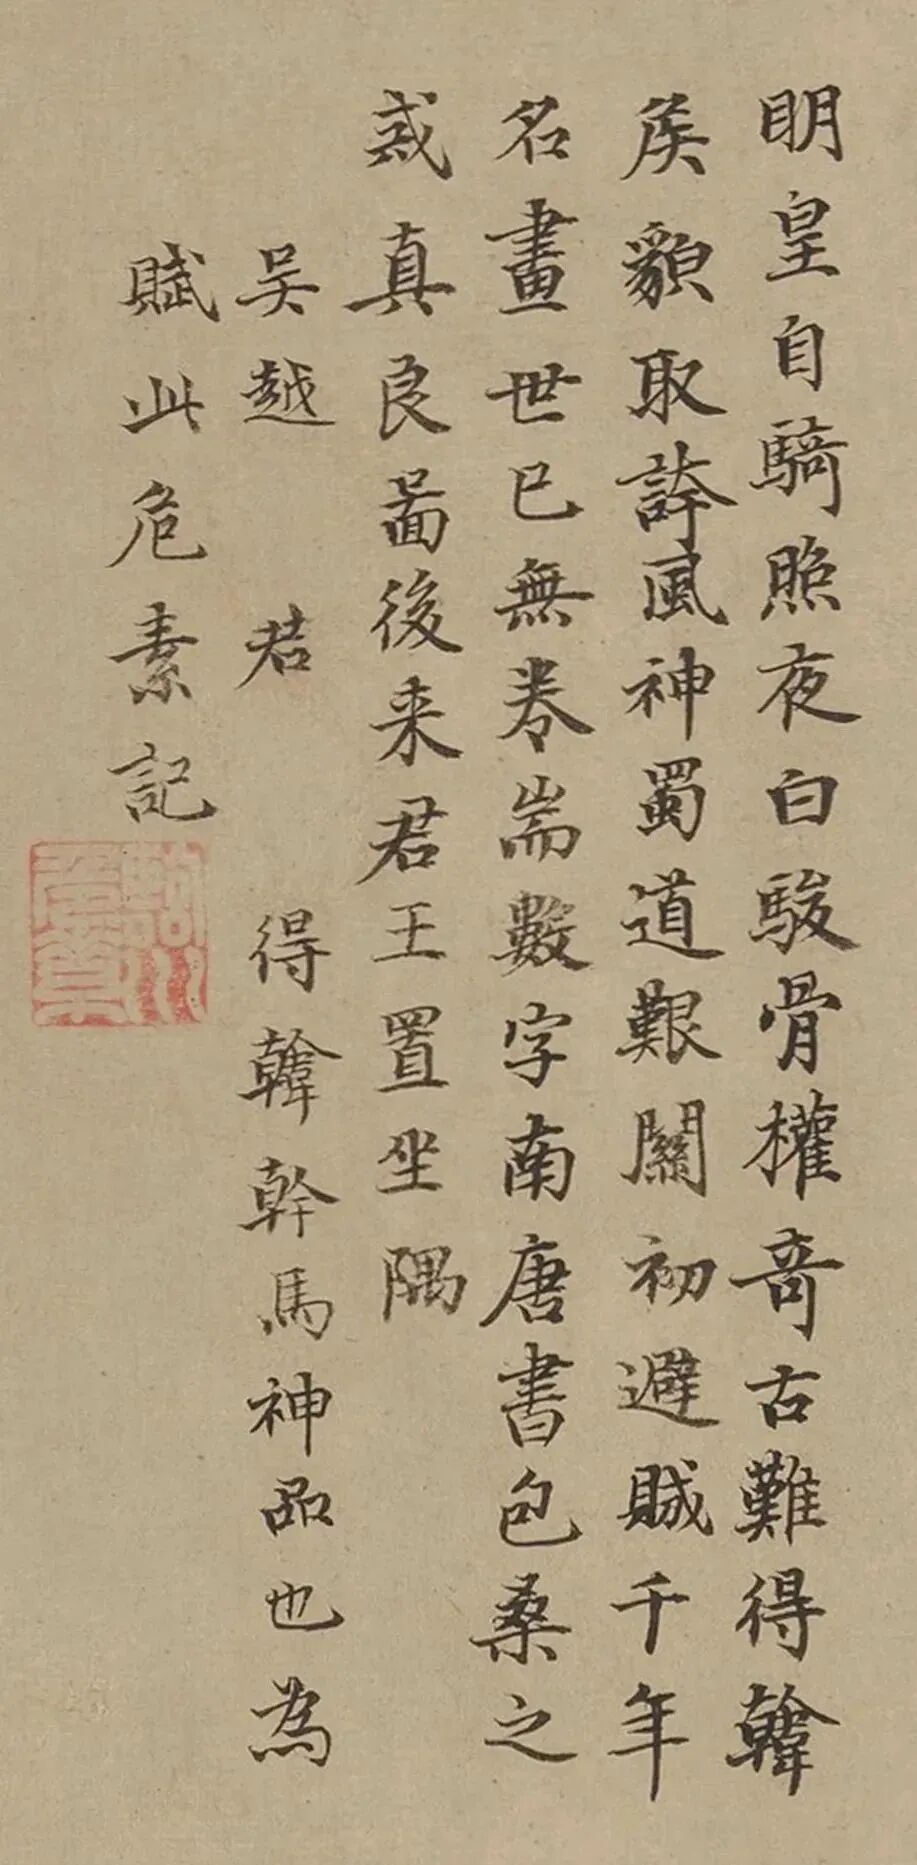 明皇自騎照夜白駿骨權竒古難得韓
矦貌取誇風神蜀道艱關初避賊千年
名畫世已無卷耑數字南唐書包桑之
戒真良啚後来君王置坐隅
吴越 君 得韓幹馬神品也為
賦此危素記